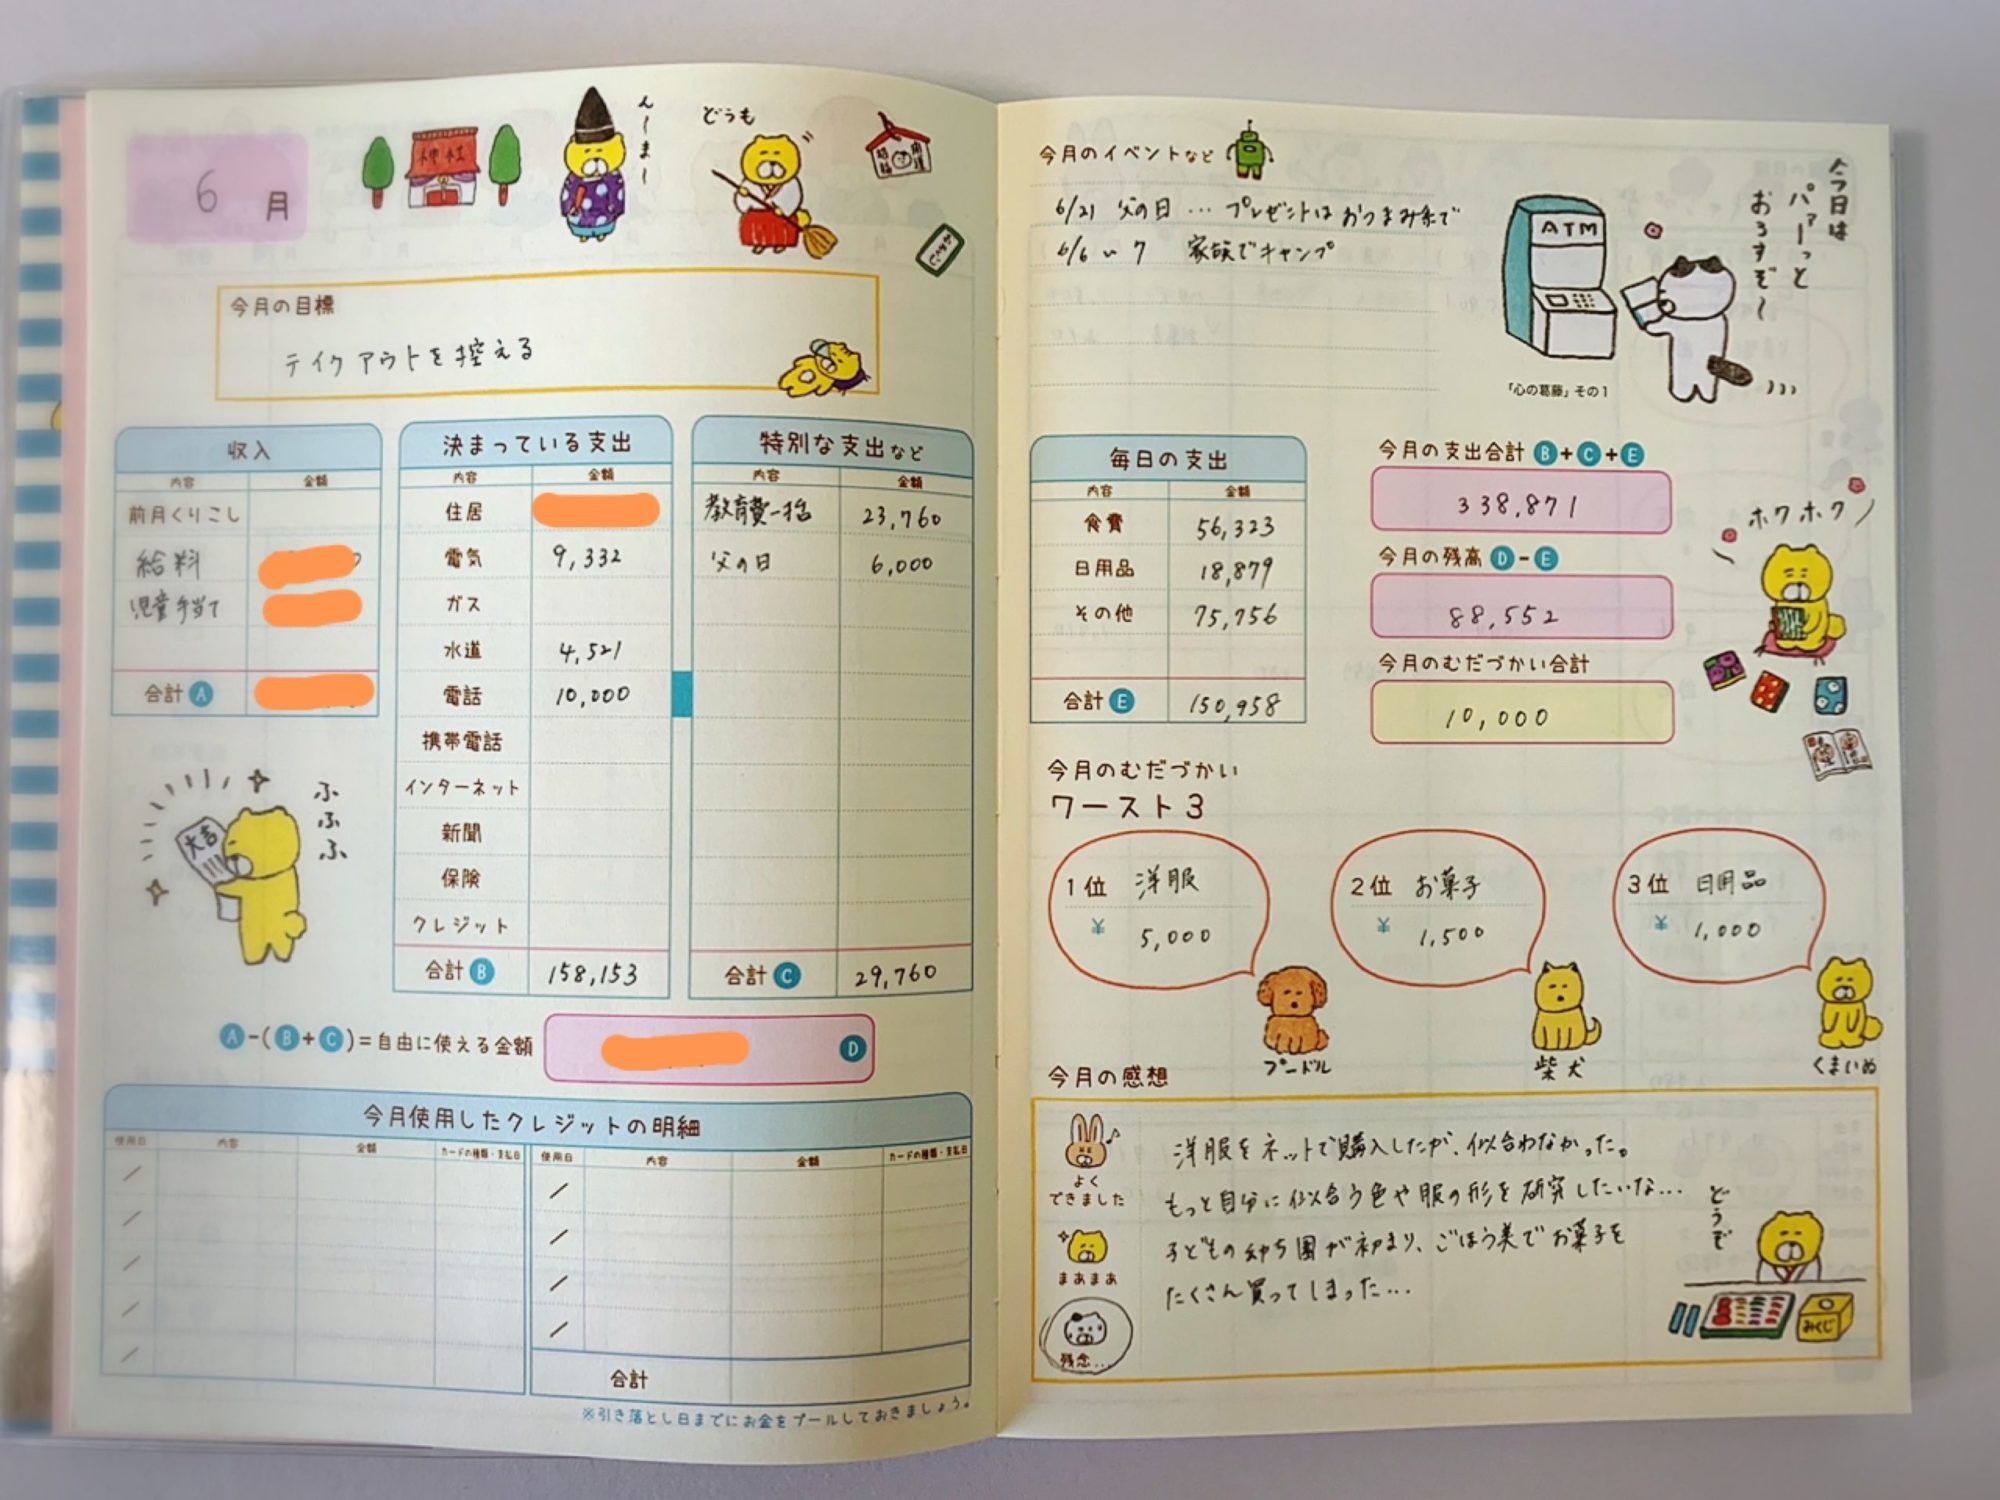 6月
神社
んーまー
どうも
今月の目標
テイクアウトを控える
収入
内容 金額
前月くりこし
給料
児童手当て
合計 A
決まっている支出
内容 金額
住居
電気 9,332
ガス
水道 4,521
電話 10,000
携帯電話
インターネット
新聞
保険
クレジット
合計 B 158,153
特別な支出など
内容 金額
教育費一括 23,760
父の日 6,000
合計 C 29,760
大吉
ふふふ
A-(B+C)=自由に使える金額 D
今月使用したクレジットの明細
使用日 内容 金額 カードの種類・支払日 使用日 内容 金額 カードの種類・支払日
合計
※引き落とし日までにお金をプールしておきましょう。
今月のイベントなど
6/21 父の日…プレゼントはおつまみ系で
6/6〜7 家族でキャンプ
ATM
今日は
パァーっと
おろすぞ〜
「心の葛藤」その1
毎日の支出
内容 金額
食費 56,323
日用品 18,879
その他 75,756
合計 E 150,958
今月の支出合計 B+C+E
338,871
今月の残高 D-E
88,552
今月のむだづかい合計
10,000
ホクホク
今月のむだづかい
ワースト3
1位 洋服
¥ 5,000
プードル
2位 お菓子
¥ 1,500
柴犬
3位 日用品
¥ 1,000
くまいぬ
今月の感想
よく
できました
まあまあ
残念…
洋服をネットで購入したが、似合わなかった。
もっと自分に似合う色や服の形を研究したいな…
子どもの幼ち園が初まり、ごほう美でお菓子を
たくさん買ってしまった…
どうぞ
みくじ